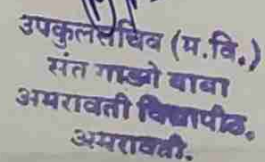 उपकुलसचिव (म.वि.)
संत गाडगे बाबा
अमरावती विद्यापीठ,
अमरावती.